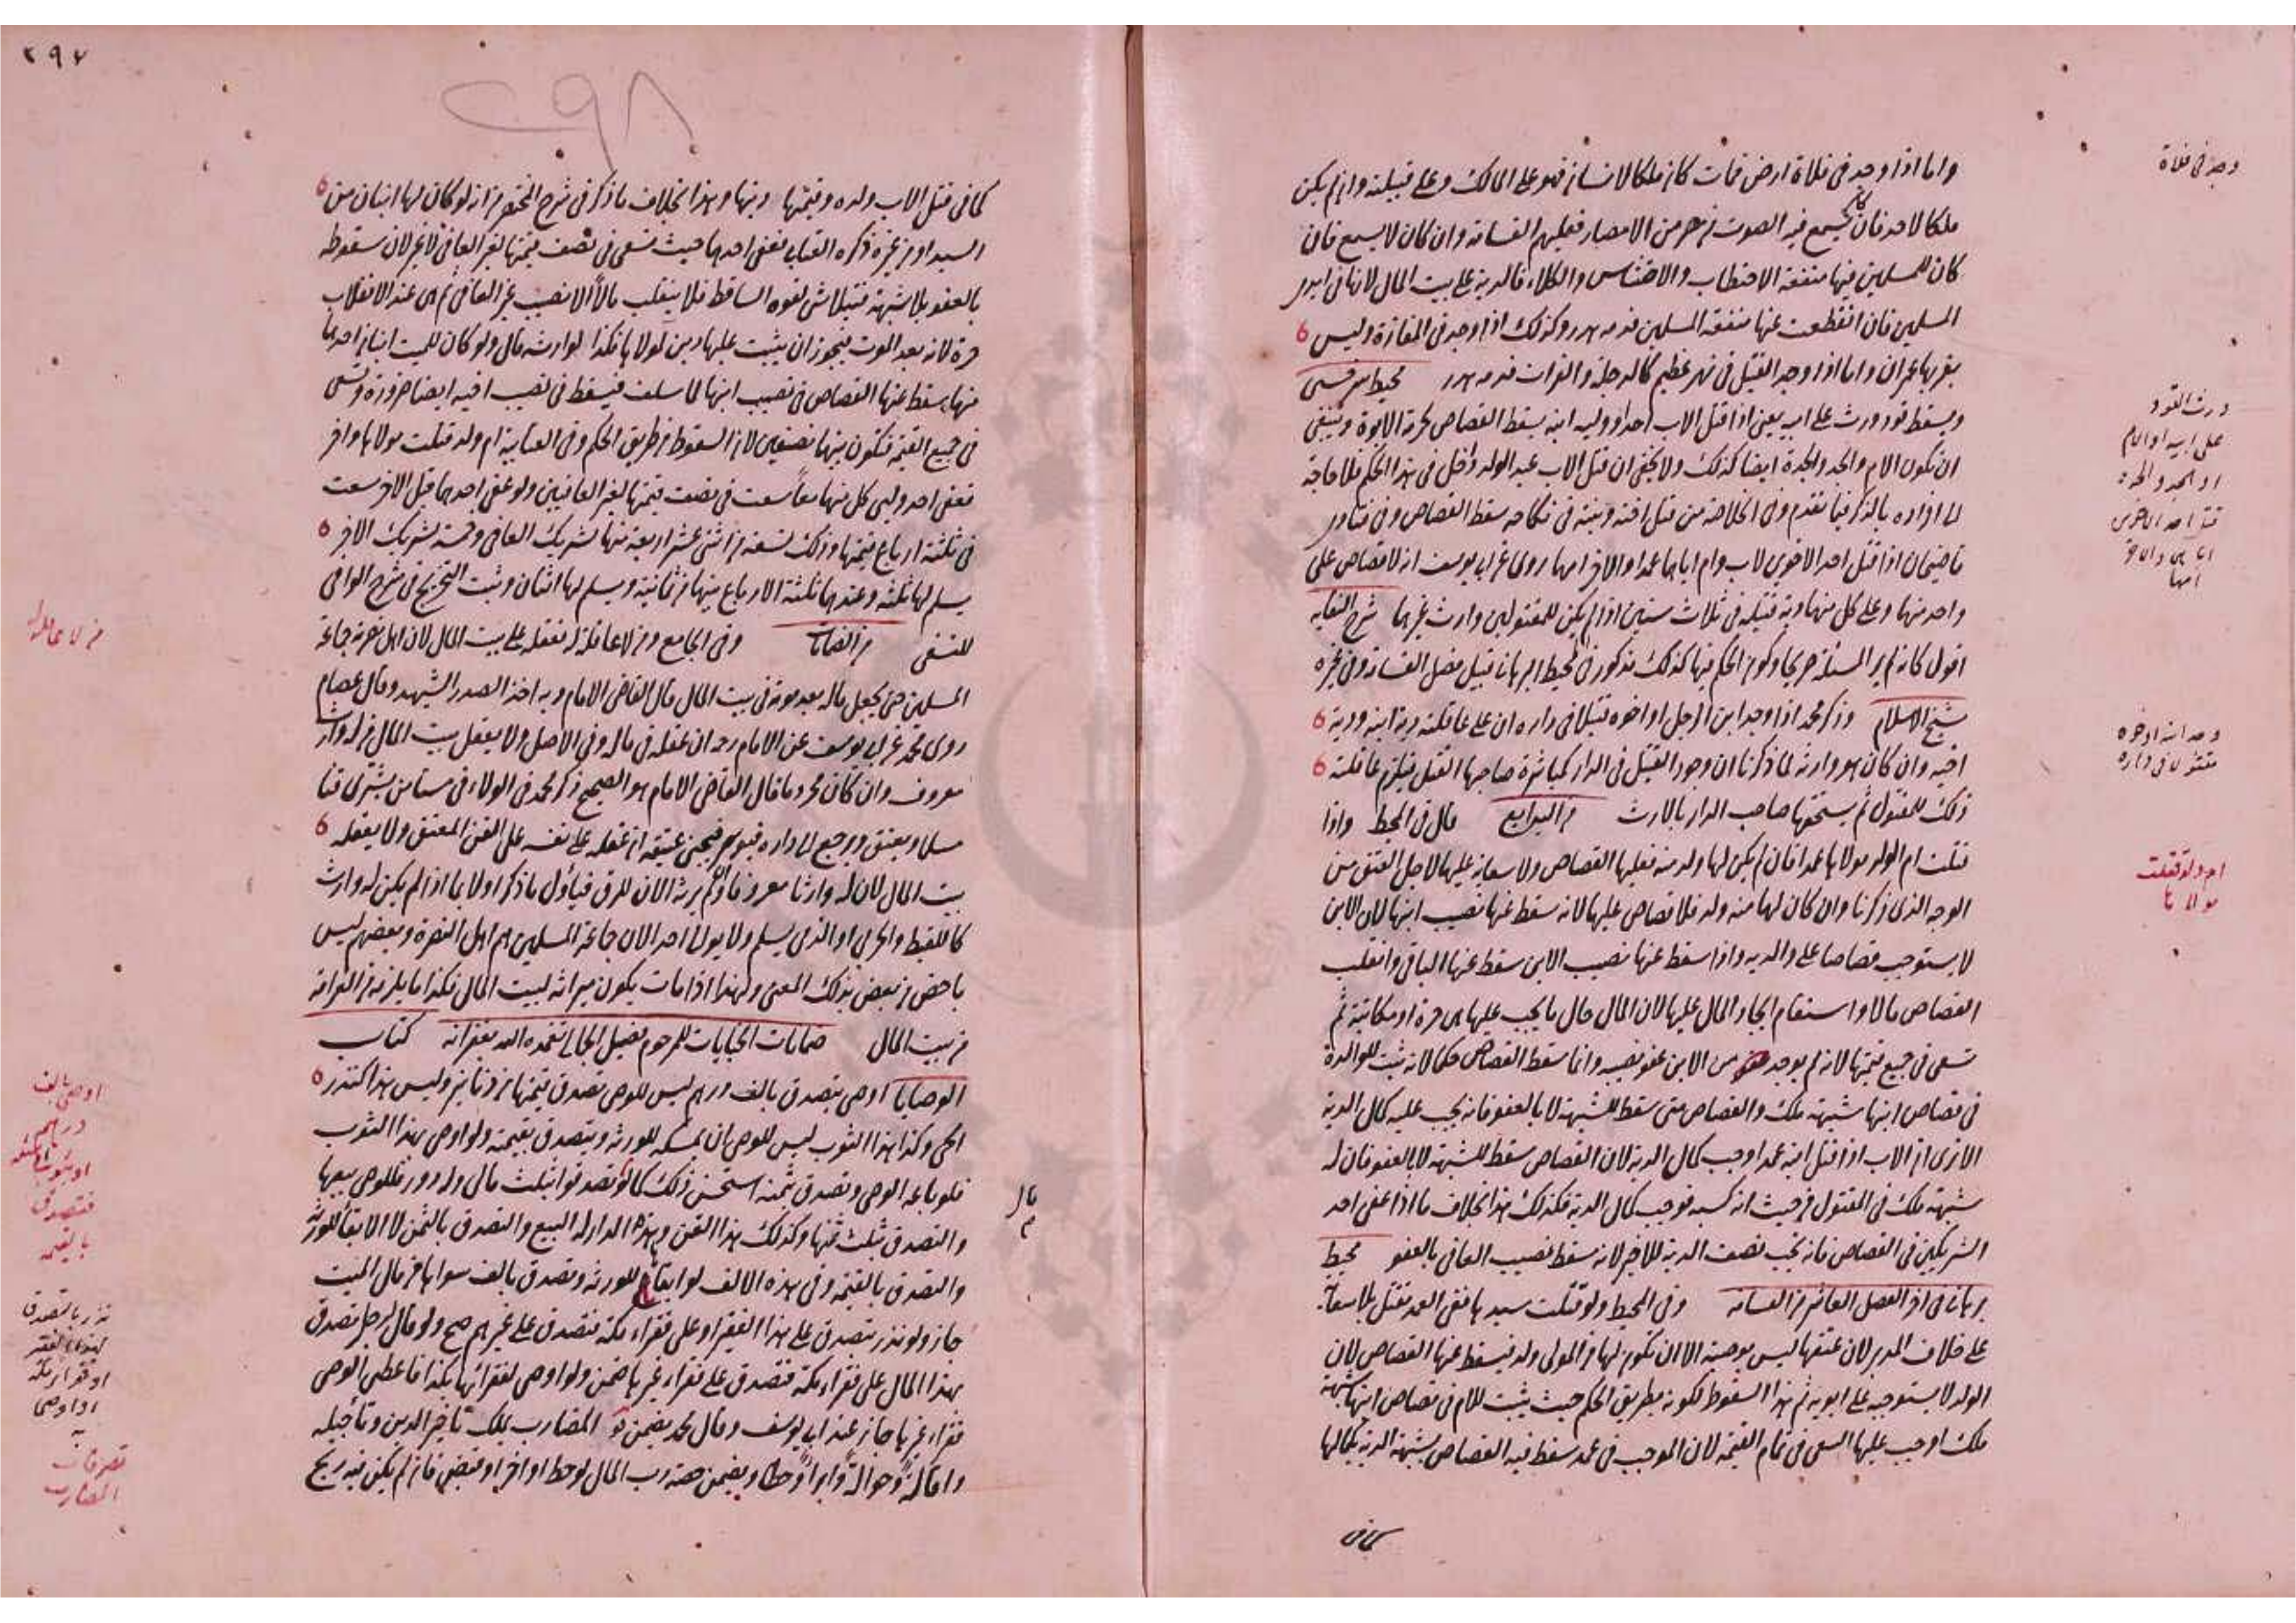 واما اذا وجد فى فلاة ارض فمات كان ملكا لانسان فهو على المالك وعلى قبيلته وان لم يكن
ملكا لاحد فان كان يسمع فيه الصوت من مصر من الامصار فعليهم القسامة وان كان لا يسمع فان
كان للمسلمين فيها منفعة الاحتطاب والاحتشاش والكلاء فالدية على بيت المال لانها فى ايدى
المسلمين فان انقطعت عنها منفعة المسلمين فدمه هدر وكذلك اذا وجد فى المفازة وليس
بقربها عمران واما اذا وجد القتيل فى نهر عظيم كالدجلة والفرات فدمه هدر محيط سرخسى
ويسقط قود ورث على ابيه يعنى اذا قتل الاب احدا ووليه ابنه يسقط القصاص لحرمة الابوة وينبغى
ان تكون الام والجد والجدة ايضا كذلك ولا يخفى ان قتل الاب عبد الولد داخل فى هذا الحكم فلا حاجة
الى افراده بالذكر فيما تقدم وفى الخلاصة من قتل ختنه وبنته فى نكاحه سقط القصاص وفى فتاوى
قاضيخان اذا قتل احد الاخوين لاب وام اباهما عمدا والاخر امهما روى عن ابى يوسف انه لا قصاص على
واحد منهما وعلى كل منهما دية قتيله فى ثلاث سنين اذا لم يكن للمقتولين وارث غيرهما شرح النقايه
اقول كانه لم ير المسئلة صريحا وكون الحكم فيها كذلك مذكور فى المحيط البرهانى قبيل فصل القسامة وفى غيره
شيخ الاسلام وذكر محمد اذا وجد ابن الرجل او اخوه قتيلا فى داره ان على عاقلته دية ابنه ودية
اخيه وان كان هو وارثه لما ذكرنا ان وجود القتيل فى الدار كمباشرة صاحبها القتل فيلزم عاقلته
ذلك للمقتول ثم يستحقها صاحب الدار بالارث من البدايع قال فى المحيط واذا
قتلت ام الولد مولاها عمدا فان لم يكن لها ولد منه فعليها القصاص ولا سعاية عليها لاجل العتق من
الوجه الذى ذكرنا وان كان لها منه ولد فلا قصاص عليها لانه سقط عنها نصيب ابنها لان الابن
لا يستوجب قصاصا على والديه واذا سقط عنها نصيب الابن سقط عنها الباقى وانقلب
القصاص مالا واستقام ايجاد المال عليها لان المال حال ما يجب عليها هى حرة او مكاتبة ثم
تسعى فى جميع قيمتها لانه لم يوجد من الابن عفو نصيبه وانما سقط القصاص حكما لانه يثبت للوالدة
فى قصاص ابنها شبهة ملك والقصاص متى سقط للشبهة لا بالعفو فانه يجب عليه كمال الدية
الا ترى ان الاب اذا قتل ابنه عمدا وجب كمال الدية لان القصاص سقط للشبهة لا بالعفو فان له
شبهة ملك فى المقتول من حيث انه كسبه فوجب كمال الدية فكذلك هذا بخلاف ما اذا عفى احد
الشريكين فى القصاص فانه يجب نصف الدية للاخر لانه سقط نصيب العافى بالعفو محيط
برهانى فى اخر الفصل العاشر من القسامة وفى المحيط ولو قتلت سيدها ففى العمد تقتل بلا سعاية
على خلاف المدبر لان عتقها ليس بوصية الا ان تكون لها من المولى ولد فيسقط عنها القصاص لان
الولد لا يستوجبه على ابويه ثم هذا السقوط لكونه بطريق الحكم حيث يثبت للام فى قصاص ابنها شبهة
ملك اوجب عليها السعى فى تمام القيمة لان الموجب فى عمد سقط فيه القصاص بشبهة الدية بكمالها
كما فى
وجد فى فلاة
ورث القود
على ابيه او الام
او الجد والجدة
قتل احد الاخوين
اباهما والاخر
امهما
وجد ابنه او اخوه
مقتولا فى داره
ام ولد قتلت
مولاها
٢٩٧
٢٩٨
كما فى قتل الاب ولده وقيمتها ديتها وهذا بخلاف ما ذكر فى شرح المختصر من انه لو كان لها ابنان من
السيد او من غيره ذكره العتابى فعفى احدهما حيث تسعى فى نصف قيمتها لغير العافى لا غير لان سقوطه
بالعفو بلا شبهة فتبلاشى لغوه الساقط فلا ينقلب مالا الا نصيب غير العافى ثم هى عند الانقلاب
حرة لانه بعد الموت فيجوز ان يثبت عليها دين لمولاها فكذا لوارثه قال ولو كان للميت ابنان احدهما
منها يسقط عنها القصاص فى نصيب ابنها لما سلف فيسقط فى نصيب اخيه ايضا ضرورة وتسعى
فى جميع القيمة فتكون بينهما نصفين لان السقوط من طريق الحكم وفى العتابية ام ولد قتلت مولاها واخر
فعفى احد وليى كل منهما معا سعت فى نصف قيمتها لغير العافيين ولو عفى احدهما قبل الاخر سعت
فى ثلثة ارباع قيمتها وذلك تسعة من اثنى عشر اربعة منها لشريك العافى وخمسة لشريك الاخر
يسلم لها ثلثه وعندهما ثلثة الارباع بينهما من ثمانية ويسلم لها اثنان وثبت التخريج فى شرح الوافى
للنسفى من الضمانات وفى الجامع ومن لا عاقلة له فعقله على بيت المال لان اهل نصرته جماعة
المسلمين حتى يجعل ماله بعد موته فى بيت المال قال القاضى الامام وبه اخذ الصدر الشهيد وقال عصام
روى محمد عن ابى يوسف عن الامام رحمه ان عقله فى ماله وفى الاصل ولا يعقل بيت المال من له وارث
معروف وان كان محروما قال القاضى الامام هو الصحيح ذكر محمد فى الولاء فى مستامن يشترى قنا
مسلما ويعتق ورجع الى داره فيوسر فيجنى عتيقه ان عقله على نفسه على القن المعتق ولا يعقله
بيت المال لان له وارثا معروفا ولم يرثه الان للرق فياول ما ذكر اولا بما اذا لم يكن له وارث
كاللقيط والحربى او الذى يسلم ولا يوالى احدا لان جماعة المسلمين هم اهل النصرة وبعضهم ليس
باخص من بعض بذلك المعنى ولهذا اذا مات يكون ميراثه لبيت المال فكذا ما يلزمه من الغرامة
من بيت المال ضمانات الجنايات للمرحوم فضيل الجمالى تغمده الله بغفرانه كتاب
الوصايا اوصى بتصدق بالف درهم ليس للوصى تصدق قيمتها من دنانير وليس هذا كنذر
الحى وكذا بهذا الثوب ليس للوصى ان يمسكه للورثة ويتصدق بقيمته ولو اوصى بهذا الثوب
فلو باعه الوصى وتصدق بثمنه استحسن ذلك كما لو تصدقوا بثلث مالى وله دور فللوصى بيعها
والتصدق بثلث ثمنها وكذلك هذا القن وهذه الدار له البيع والتصدق بالثمن لا الابقاء للورثة
والتصدق بالقيمة وفى هذه الالف لو ابقاها للورثة وتصدق بالف سواها من مال الميت
جاز ولو نذر يتصدق على هذا الفقير او على فقراء مكة فتصدق على غيرهم صح ولو قال لرجل تصدق
بهذا المال على فقراء مكة فتصدق على فقراء غيرها ضمن ولو اوصى لفقرائها بكذا فاعطى الوصى
فقراء غيرها جاز عند ابى يوسف وقال محمد يضمن المضارب يملك تاخير الدين وتأجيله
واقالة وحوالة وابراء وحطا ويضمن حصة رب المال لو حط او اخر او قبض فان لم يكن فيه ربح
مال
من لا عاقلة له
اوصى بالف
دراهم
فتصدق
بالقيمه
نذر بالتصدق
لهذا الفقير
او فقراء مكة
او اوصى
به
تصرفات
المضارب